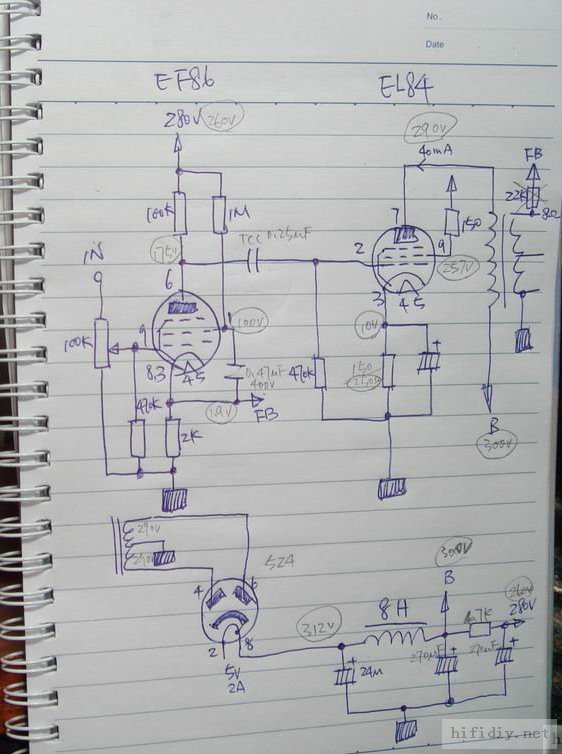 No.
Date
EF86
EL84
280V 260V
290V
40mA
FB
100K
1M
7
150
22K
8Ω
IN
175V
TCC 0.25uF
2
9
257V
6
3
45
100K
9
1
100V
10V
8.3
45
0.47uF
400V
470K
150
470K
1.9V
FB
2K
B
300V
290V
290V
5Z4
4
6
300V
B
260V
280V
312V
8H
4.7K
2
8
5V
2A
24M
270uF
270uF
hifidiy.net